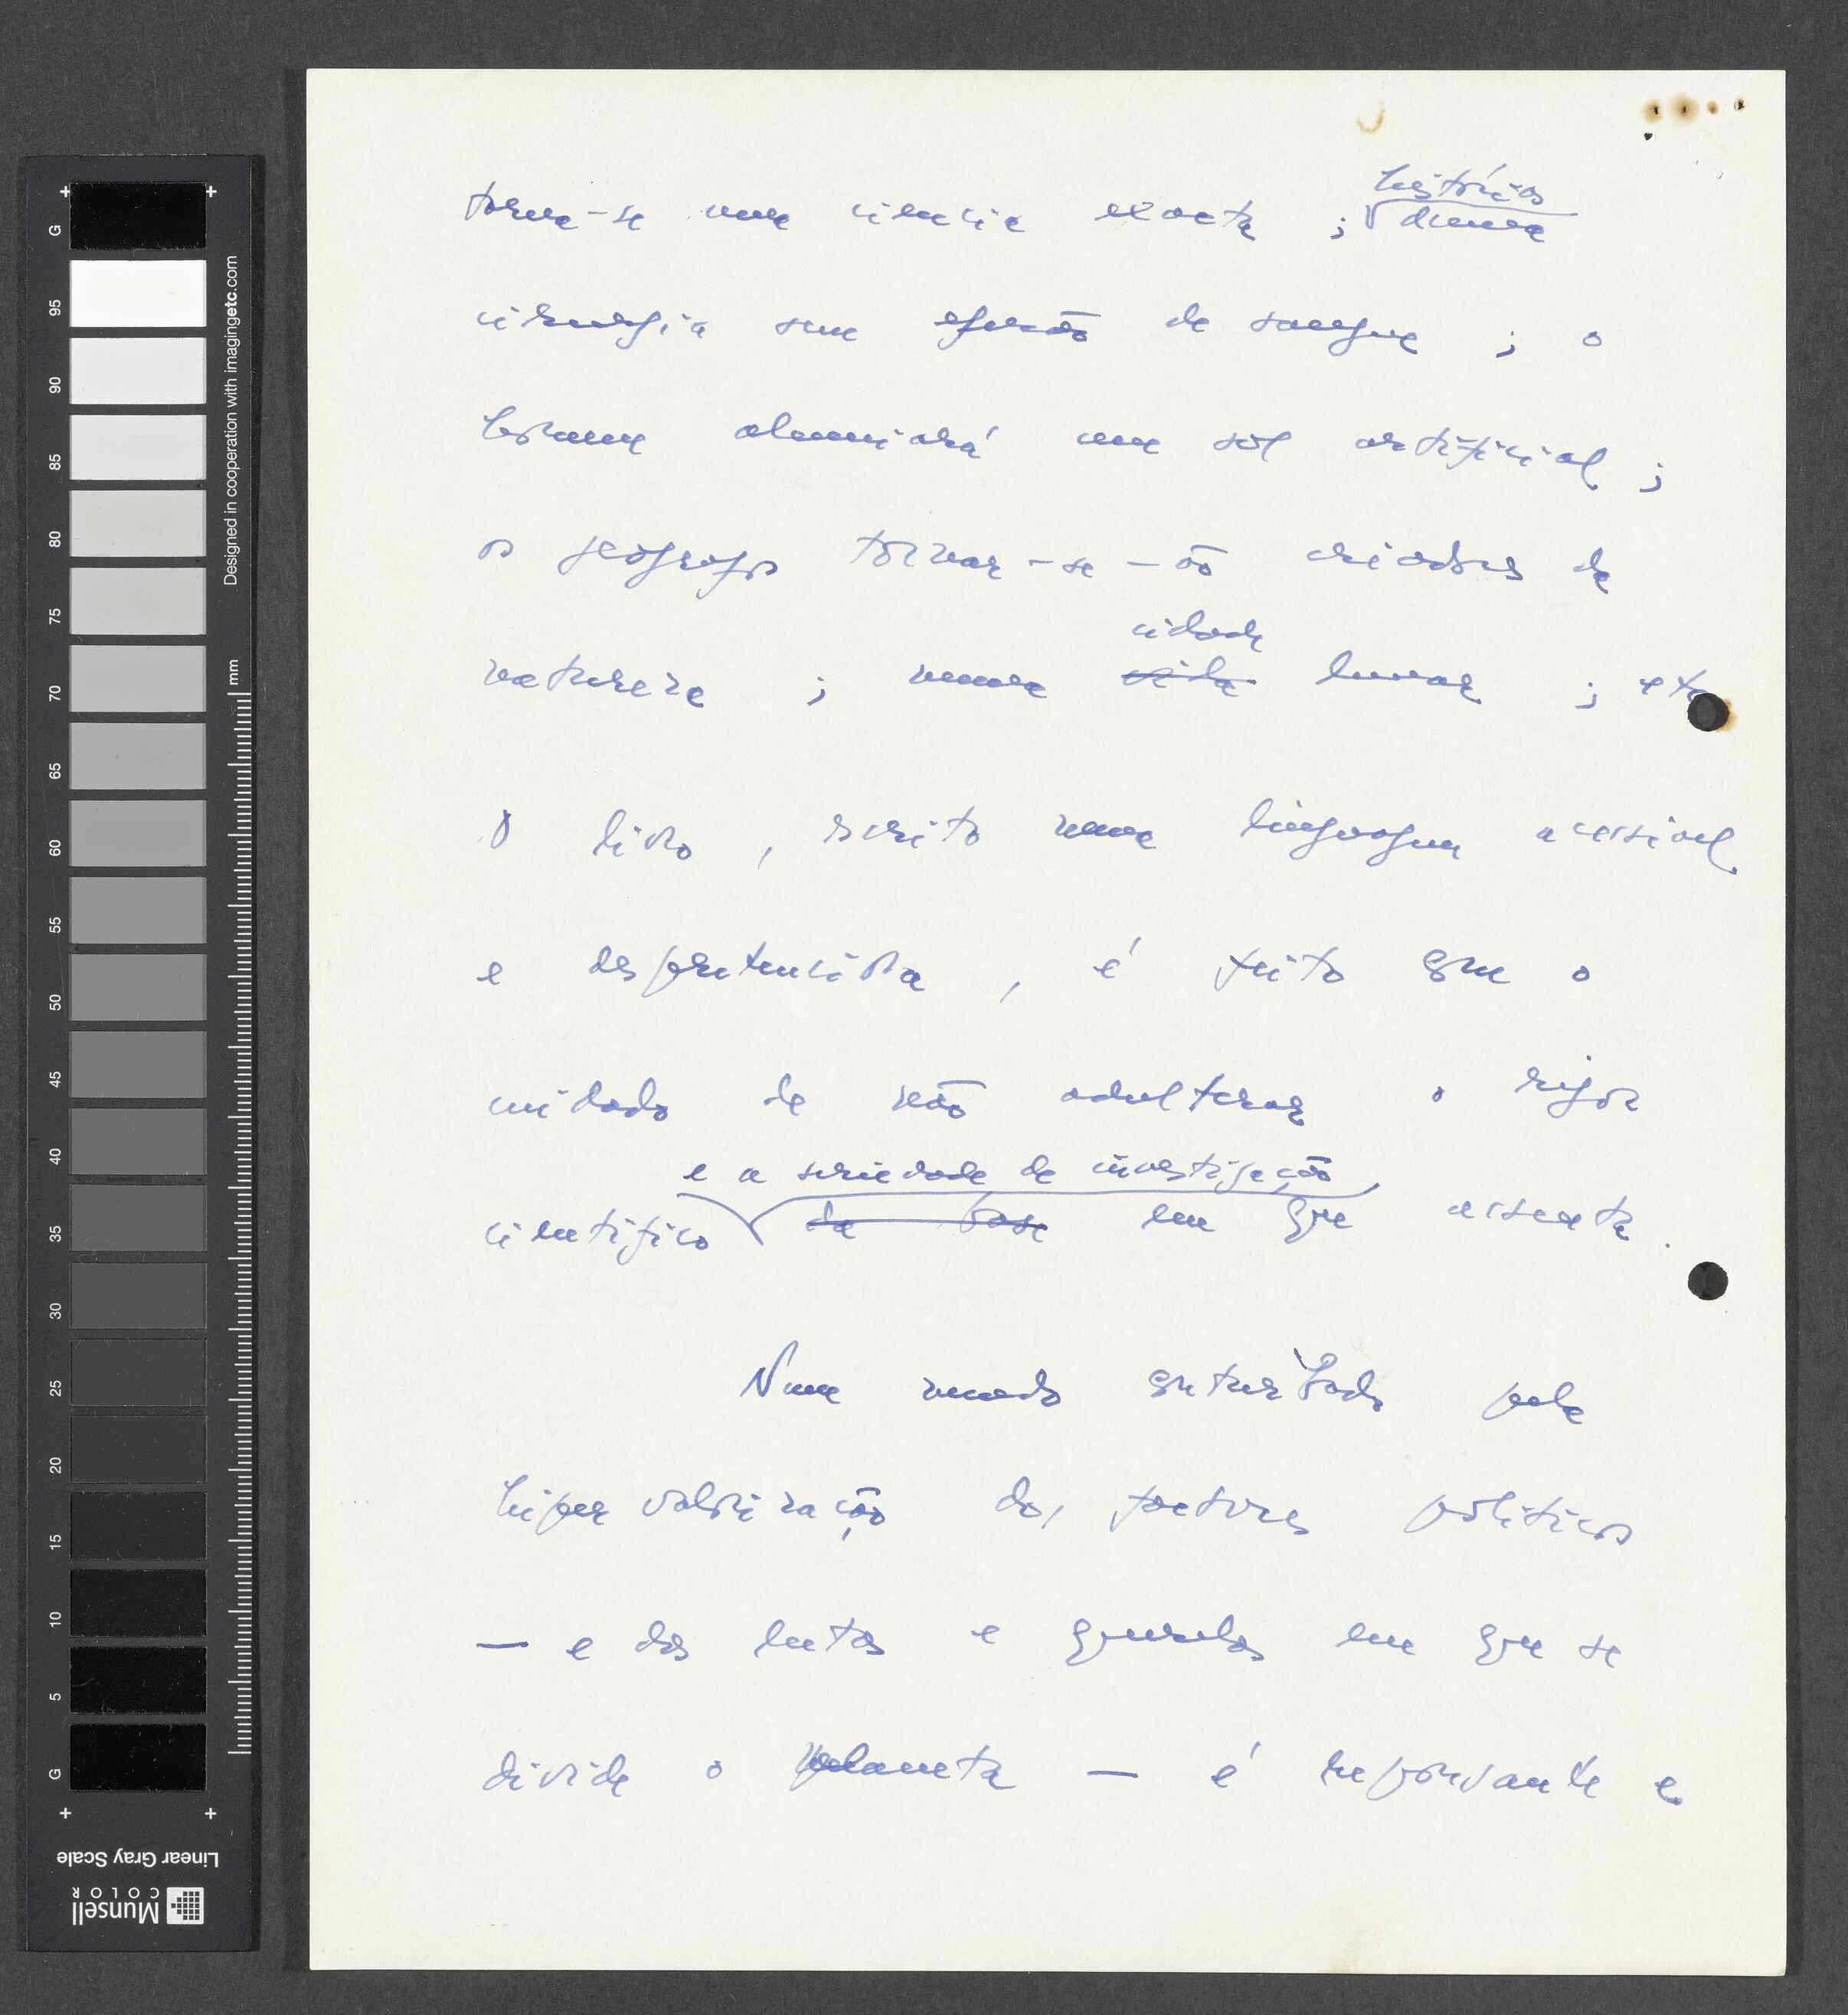 torna-se uma ciencia exacta ; história
duma
cirurgia sem efusão de sangue ; o
homem alumiará um sol artificial ;
os geógrafos tornar-se-ão criadores da
natureza ; numa cidade
vila lunar ; etc
O livro , escrito numa linguagem acessivel
e despretenciosa , é feito com o
cuidado de não adulterar o rigor
e a seriedade de investigação
cientifico da base em que assenta .
Num mundo perturbado pela
hipervalorização dos factores politicos
— e das lutas e querelas em que se
divide o planeta — é repousante e
G
95
90
85
80
75
70
65
60
55
50
45
40
35
30
25
20
15
10
5
G
mm
Designed in cooperation with imagingetc.com
Linear Gray Scale
Munsell
COLOR